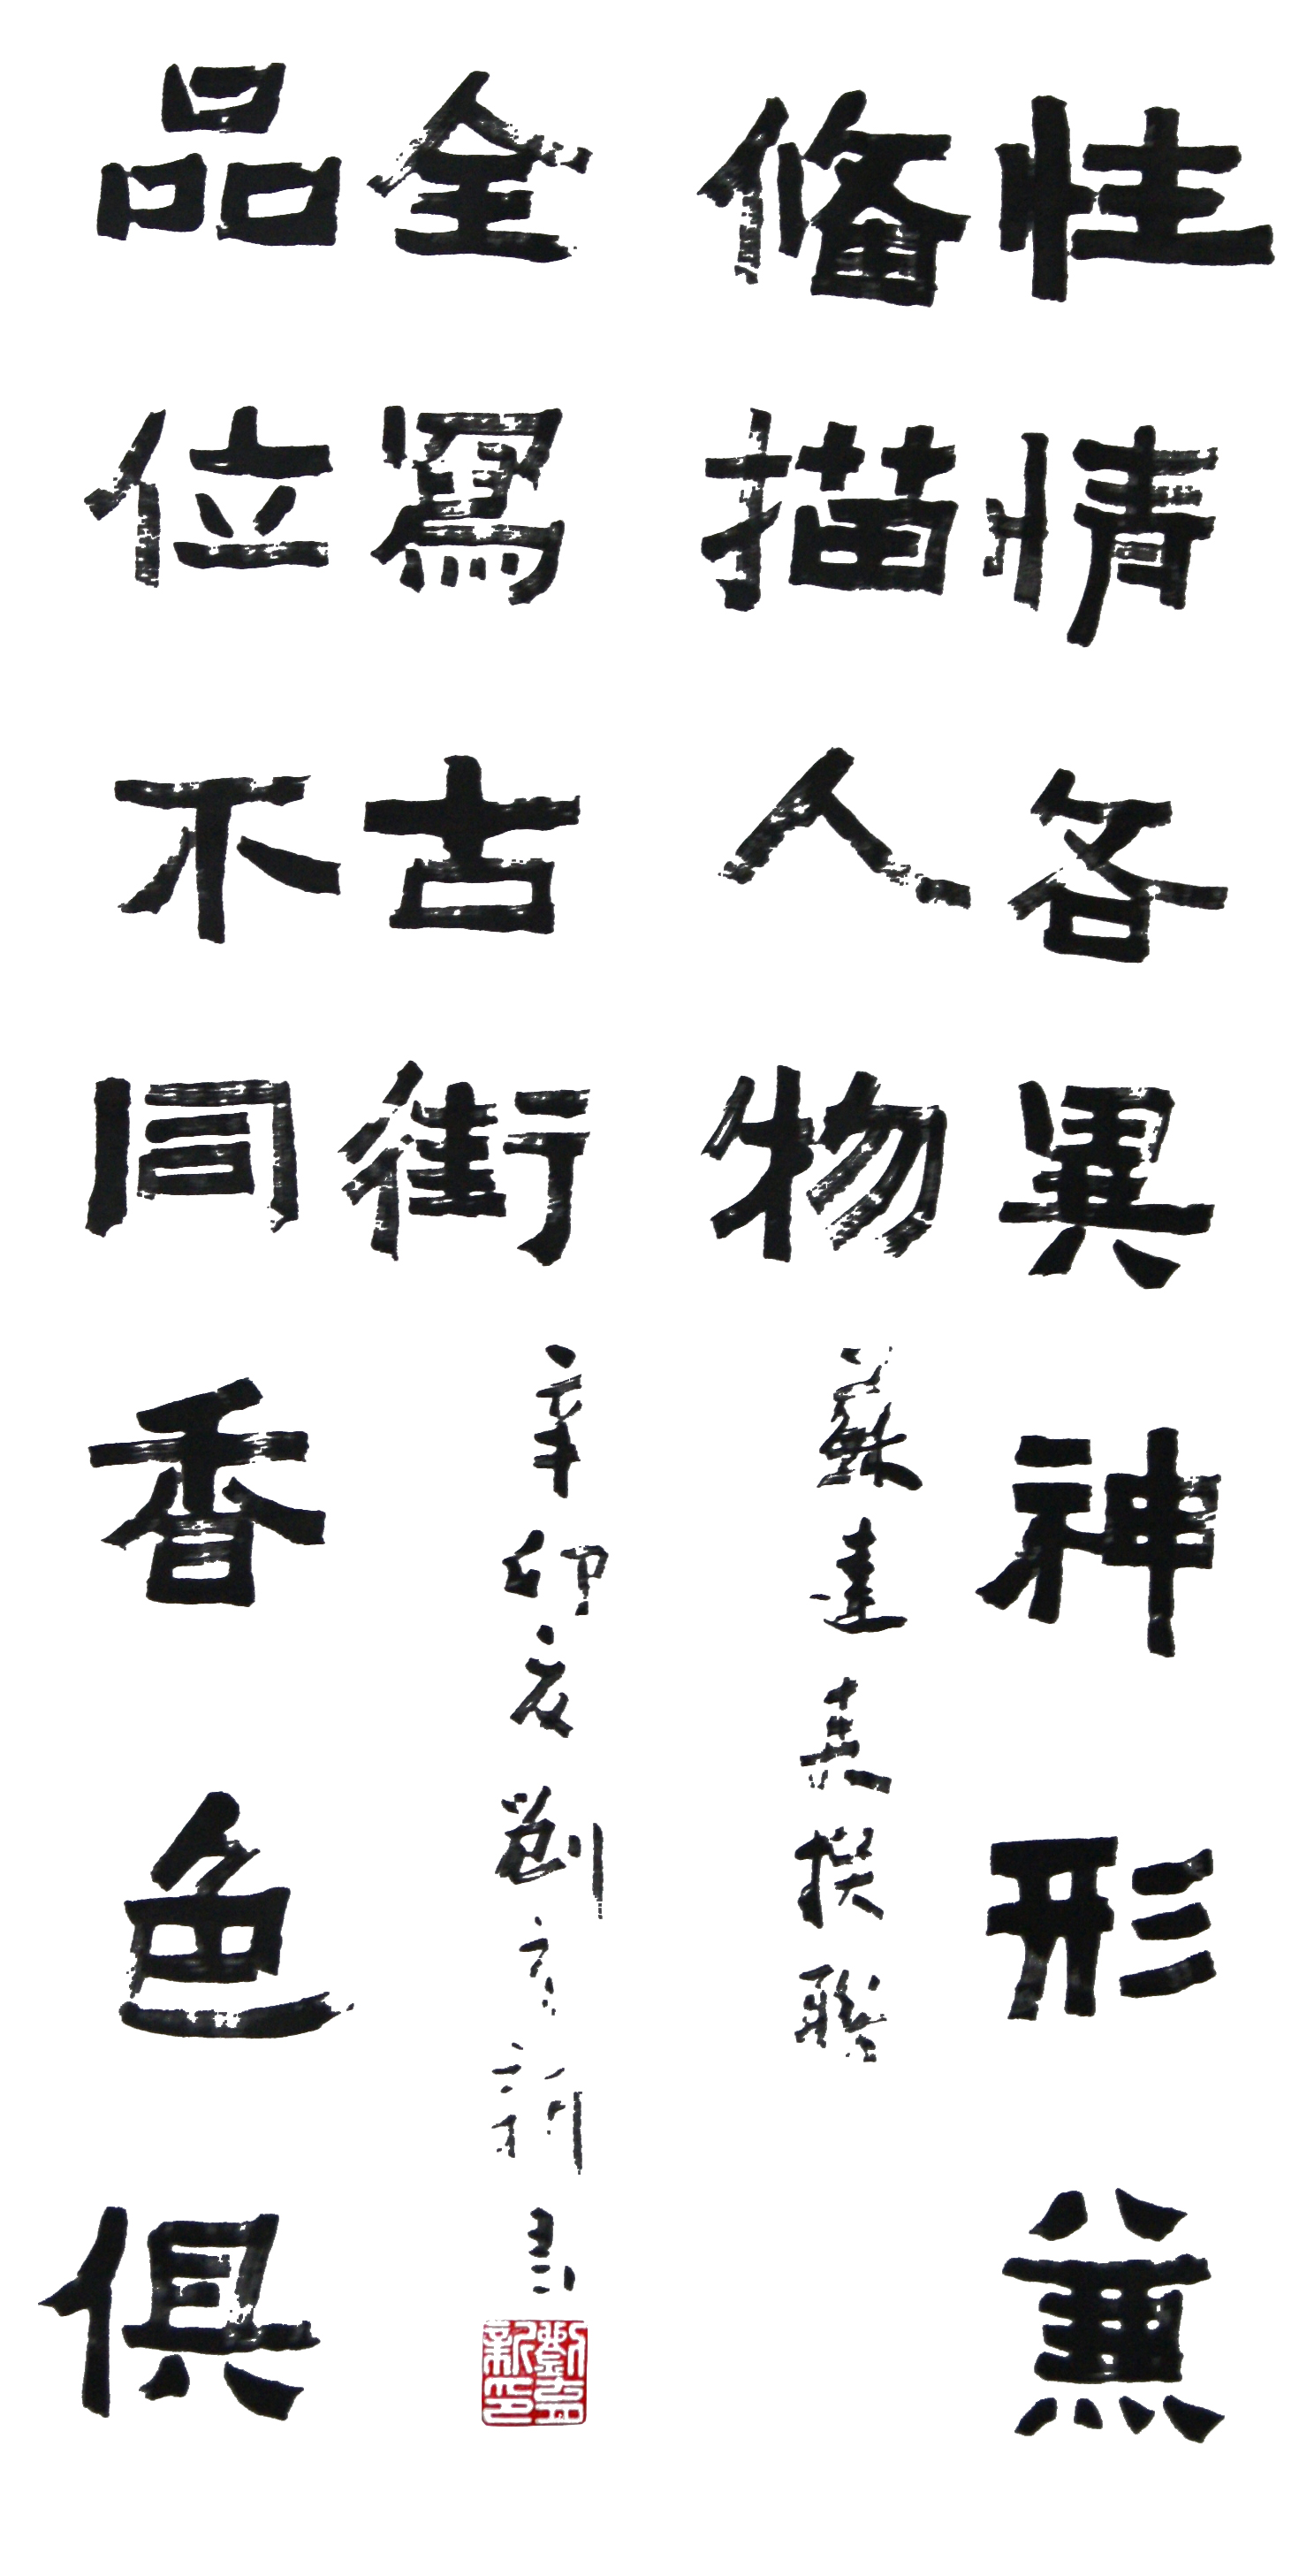 性情各異神形兼
備描人物
蘇達真撰聯
品位不同香色俱
全寫古街
辛卯夏劉新書